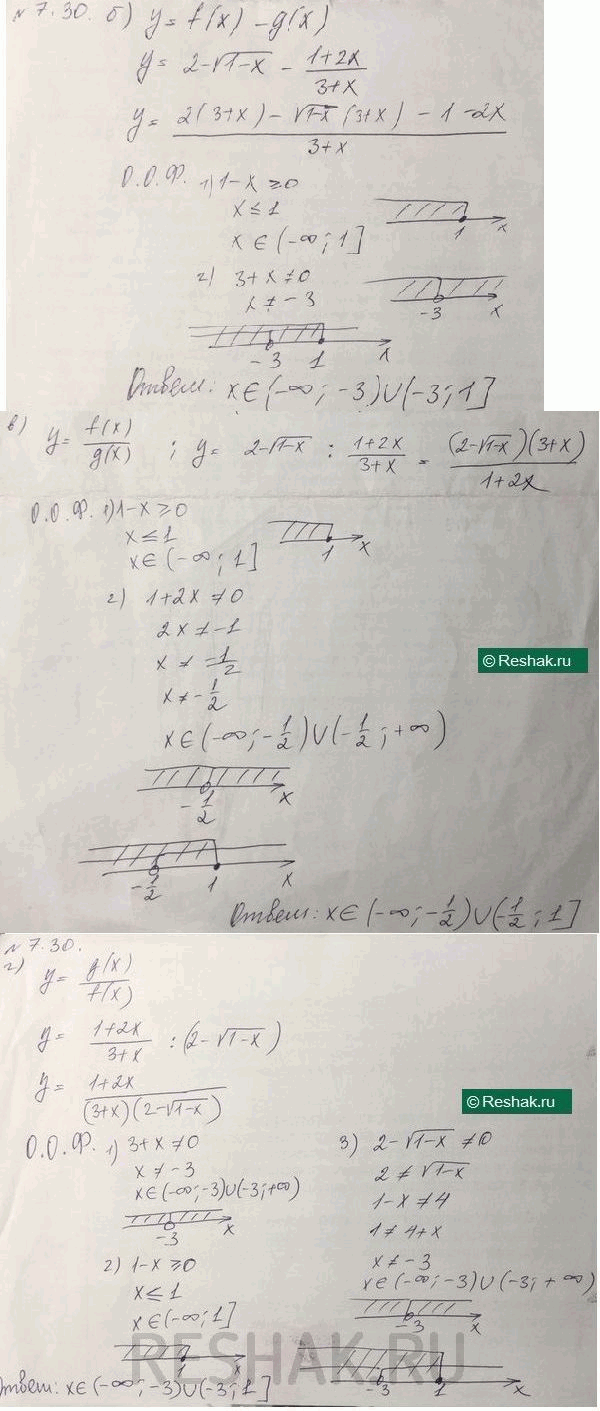 № 7.30. б) y = f(x) - g(x)
y = 2-√1-x - (1+2x)/(3+x)
y = (2(3+x) - √1-x (3+x) - 1 -2x)/(3+x)
О.О.Ф. 1) 1-x ≥0
x ≤ 1
x ∈ (-∞; 1]
1 x
2) 3+x ≠0
x ≠ -3
-3 x
-3 1 x
Ответ: x∈(-∞; -3)∪(-3; 1]
в) y = f(x)/g(x) ; y = 2-√1-x : (1+2x)/(3+x) = ((2-√1-x)(3+x))/(1+2x)
О.О.Ф. 1) 1-x ≥0
x ≤ 1
x∈ (-∞; 1]
1 x
2) 1+2x ≠0
2x ≠ -1
x ≠ -1/2
x ≠ -1/2
© Reshak.ru
x∈(-∞; -1/2)∪(-1/2; +∞)
-1/2 x
-1/2 1 x
Ответ: x∈ (-∞; -1/2)∪(-1/2; 1]
№ 7.30.
г) y = g(x)/f(x)
y = (1+2x)/(3+x) : (2-√1-x)
y = (1+2x)/((3+x)(2-√1-x))
© Reshak.ru
О.О.Ф. 1) 3+x ≠0
x ≠ -3
x∈(-∞; -3)∪(-3; +∞)
-3 x
2) 1-x ≥0
x ≤ 1
x∈(-∞; 1]
1 x
3) 2-√1-x ≠0
2 ≠ √1-x
1-x ≠4
1 ≠ 4+x
x ≠ -3
x∈(-∞; -3)∪(-3; +∞)
-3 x
-3 1 x
RESHAK.RU
Ответ: x∈(-∞; -3)∪(-3; 1]